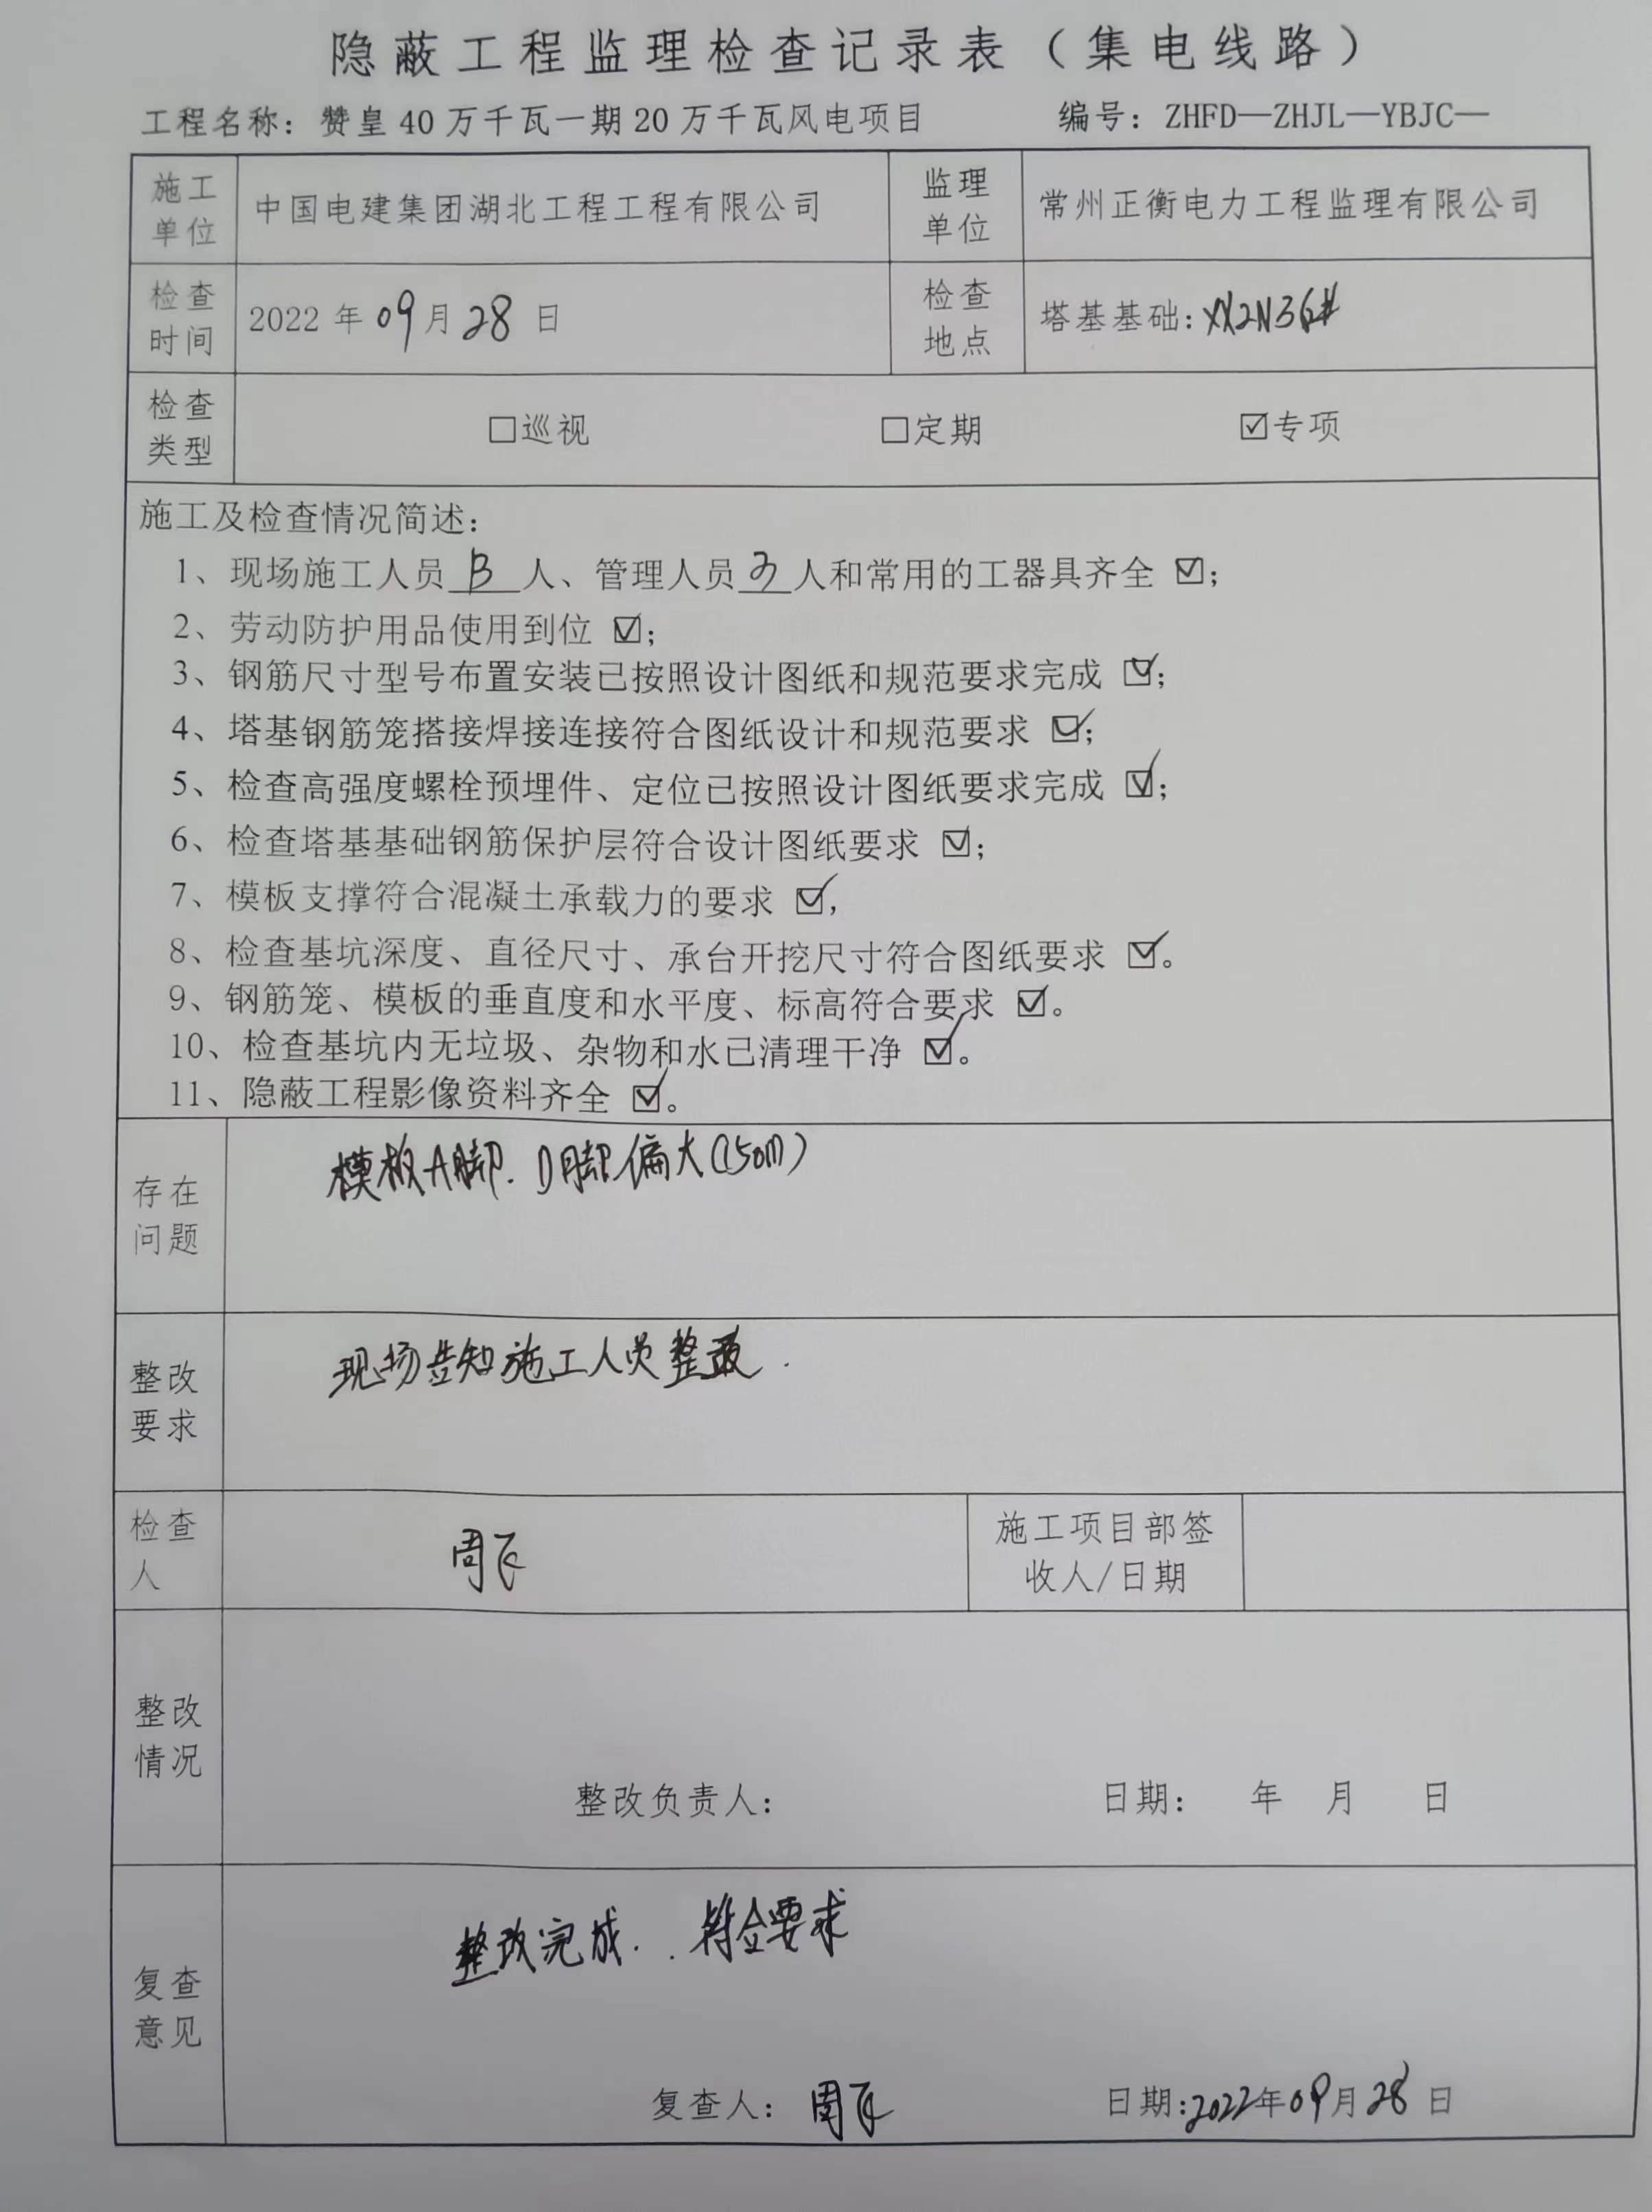 隐蔽工程监理检查记录表（集电线路）
工程名称：赞皇 40 万千瓦一期 20 万千瓦风电项目 编号：ZHFD—ZHJL—YBJC—
施工单位 中国电建集团湖北工程工程有限公司 监理单位 常州正衡电力工程监理有限公司
检查时间 2022 年 09 月 28 日 检查地点 塔基基础：XX2N36#
检查类型 □巡视 □定期 ☑专项
施工及检查情况简述：
1、现场施工人员 人、管理人员 人和常用的工器具齐全 ☑；
2、劳动防护用品使用到位 ☑；
3、钢筋尺寸型号布置安装已按照设计图纸和规范要求完成 ☑；
4、塔基钢筋笼搭接焊接连接符合图纸设计和规范要求 ☑；
5、检查高强度螺栓预埋件、定位已按照设计图纸要求完成 ☑；
6、检查塔基基础钢筋保护层符合设计图纸要求 ☑；
7、模板支撑符合混凝土承载力的要求 ☑，
8、检查基坑深度、直径尺寸、承台开挖尺寸符合图纸要求 ☑。
9、钢筋笼、模板的垂直度和水平度、标高符合要求 ☑。
10、检查基坑内无垃圾、杂物和水已清理干净 ☑。
11、隐蔽工程影像资料齐全 ☑。
存在问题 模板A脚．D脚偏大
整改要求 现场告知施工人员整改．
检查人 周 施工项目部签收人/日期
整改情况
整改负责人： 日期： 年 月 日
复查意见 整改完成．．符合要求
复查人：周 日期：2022年09月28日